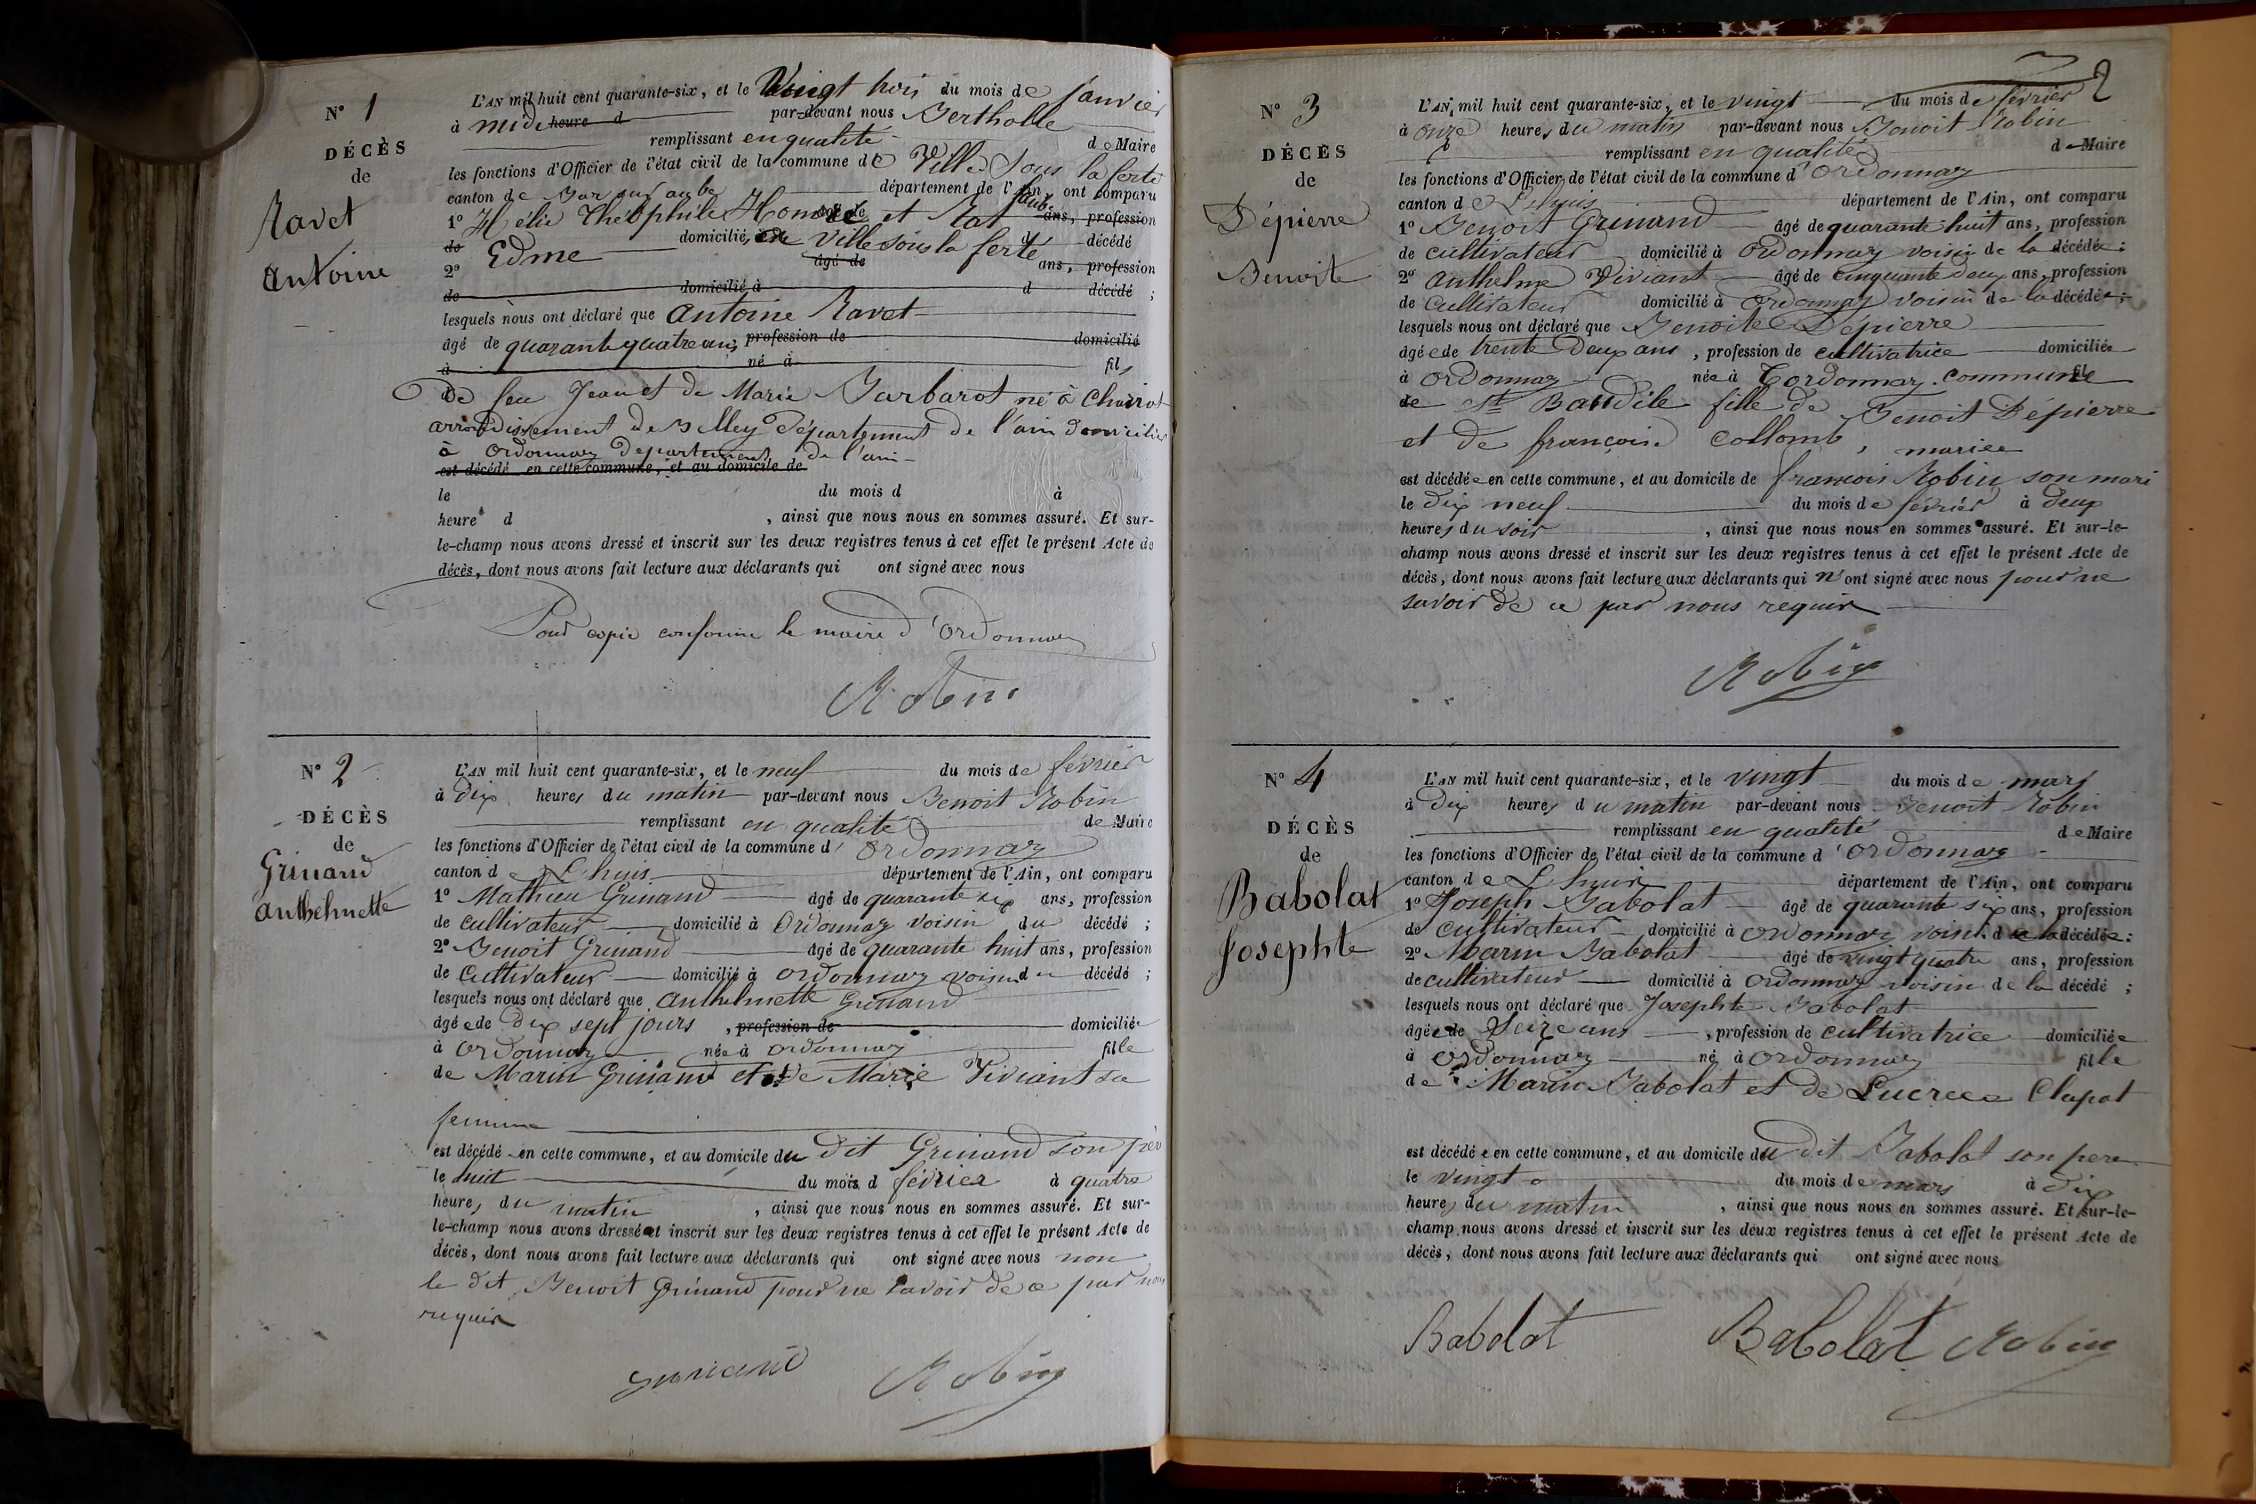 N° 1
DÉCÈS
de
Ravet
Antoine
L'AN mil huit cent quarante-six, et le Vingt trois du mois de Janvier
à midi heure d par-devant nous Bertholle
remplissant en qualité de Maire
les fonctions d'Officier de l'état civil de la commune de Ville sous la ferté
canton de Bar sur aube département de l'Ain aube ont comparu
1° Hélie Théophile Honoré âgé de et Rat ans, profession
de Edme domicilié à de Ville sous la ferté d décédé
2° âgé de ans, profession
de domicilié à d décédé ;
lesquels nous ont déclaré que Antoine Ravet
âgé de quarante quatre ans profession de domicilié
à né à fils
De feu Jean et de Marie Barbarot né à
arrondissement de Belley Département de l'ain Domicilié
à Ordonnaz Département de l'ain
est décédé en cette commune, et au domicile de
le du mois d à
heure d , ainsi que nous nous en sommes assuré. Et sur-
le-champ nous avons dressé et inscrit sur les deux registres tenus à cet effet le présent Acte de
décès, dont nous avons fait lecture aux déclarants qui ont signé avec nous
Pour copie conforme le maire d'Ordonnaz
Robin
N° 2
DÉCÈS
de
Grinand
Anthelmette
L'AN mil huit cent quarante-six, et le neuf du mois de février
à Dix heures du matin par-devant nous Benoit Robin
remplissant en qualité de Maire
les fonctions d'Officier de l'état civil de la commune d' Ordonnaz
canton de Lhuis département de l'Ain, ont comparu
1° Mathieu Grinand âgé de quarante six ans, profession
de cultivateur domicilié à Ordonnaz voisin du décédé ;
2° Benoit Grinand âgé de quarante huit ans, profession
de Cultivateur domicilié à Ordonnaz voisin du décédé ;
lesquels nous ont déclaré que Anthelmette Grinand
âgée de Dix sept jours , profession de domiciliée
à Ordonnaz née à Ordonnaz fille
de Marin Grinand et de Marie Viviant sa
femme
est décédé en cette commune, et au domicile du dit Grinand son père
le huit du mois d février à quatre
heures du matin , ainsi que nous nous en sommes assuré. Et sur-
le-champ nous avons dressé et inscrit sur les deux registres tenus à cet effet le présent Acte de
décès, dont nous avons fait lecture aux déclarants qui ont signé avec nous non
le dit Benoit Grinand pour ne savoir de ce par nous
requis
Grinand Robin
2
N° 3
DÉCÈS
de
Dépierre
Benoite
L'AN mil huit cent quarante-six, et le vingt du mois de février
à onze heures du matin par-devant nous Benoit Robin
remplissant en qualité de Maire
les fonctions d'Officier de l'état civil de la commune d' Ordonnaz
canton de Lhuis département de l'Ain, ont comparu
1° Benoit Grinand âgé de quarante huit ans, profession
de cultivateur domicilié à Ordonnaz voisin de la décédée ;
2° Anthelme Viviant âgé de cinquante deux ans, profession
de Cultivateur domicilié à Ordonnaz voisin de la décédée ;
lesquels nous ont déclaré que Benoite Dépierre
âgée de trente Deux ans , profession de cultivatrice domiciliée
à Ordonnaz née à Cordonnay commune fil
de St Baudile fille de Benoit Dépierre
et de françoise Collomb, mariée
est décédée en cette commune, et au domicile de françois Robin son mari
le Dix neuf du mois de février à deux
heures du soir , ainsi que nous nous en sommes assuré. Et sur-le-
champ nous avons dressé et inscrit sur les deux registres tenus à cet effet le présent Acte de
décès, dont nous avons fait lecture aux déclarants qui n'ont signé avec nous pour ne
savoir de ce par nous requis
Robin
N° 4
DÉCÈS
de
Babolat
Josephte
L'AN mil huit cent quarante-six, et le vingt du mois de mars
à Dix heures du matin par-devant nous Benoit Robin
remplissant en qualité de Maire
les fonctions d'Officier de l'état civil de la commune d' Ordonnaz
canton de Lhuis département de l'Ain, ont comparu
1° Joseph Babolat âgé de quarante six ans, profession
de cultivateur domicilié à Ordonnaz voisin de la décédée ;
2° Marin Babolat âgé de vingt quatre ans, profession
de cultivateur domicilié à Ordonnaz voisin de la décédé ;
lesquels nous ont déclaré que Josephte Babolat
âgée de Seize ans , profession de cultivatrice domiciliée
à Ordonnaz né à Ordonnaz fille
de Marin Babolat et de Lucrece Clapot
est décédée en cette commune, et au domicile du dit Babolat son pere
le vingt du mois de mars à dix
heures du matin , ainsi que nous nous en sommes assuré. Et sur-le-
champ nous avons dressé et inscrit sur les deux registres tenus à cet effet le présent Acte de
décès, dont nous avons fait lecture aux déclarants qui ont signé avec nous
Babolat Babolat Robin